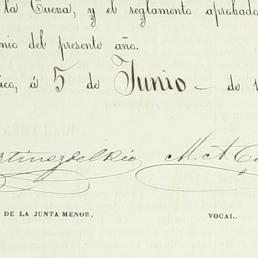 la Cueva, y el reglamento aprobado
nio del presente año.
ico, á 5 de Junio de 1
tinez del Rio M. A. C
DE LA JUNTA MENOR, VOCAL.